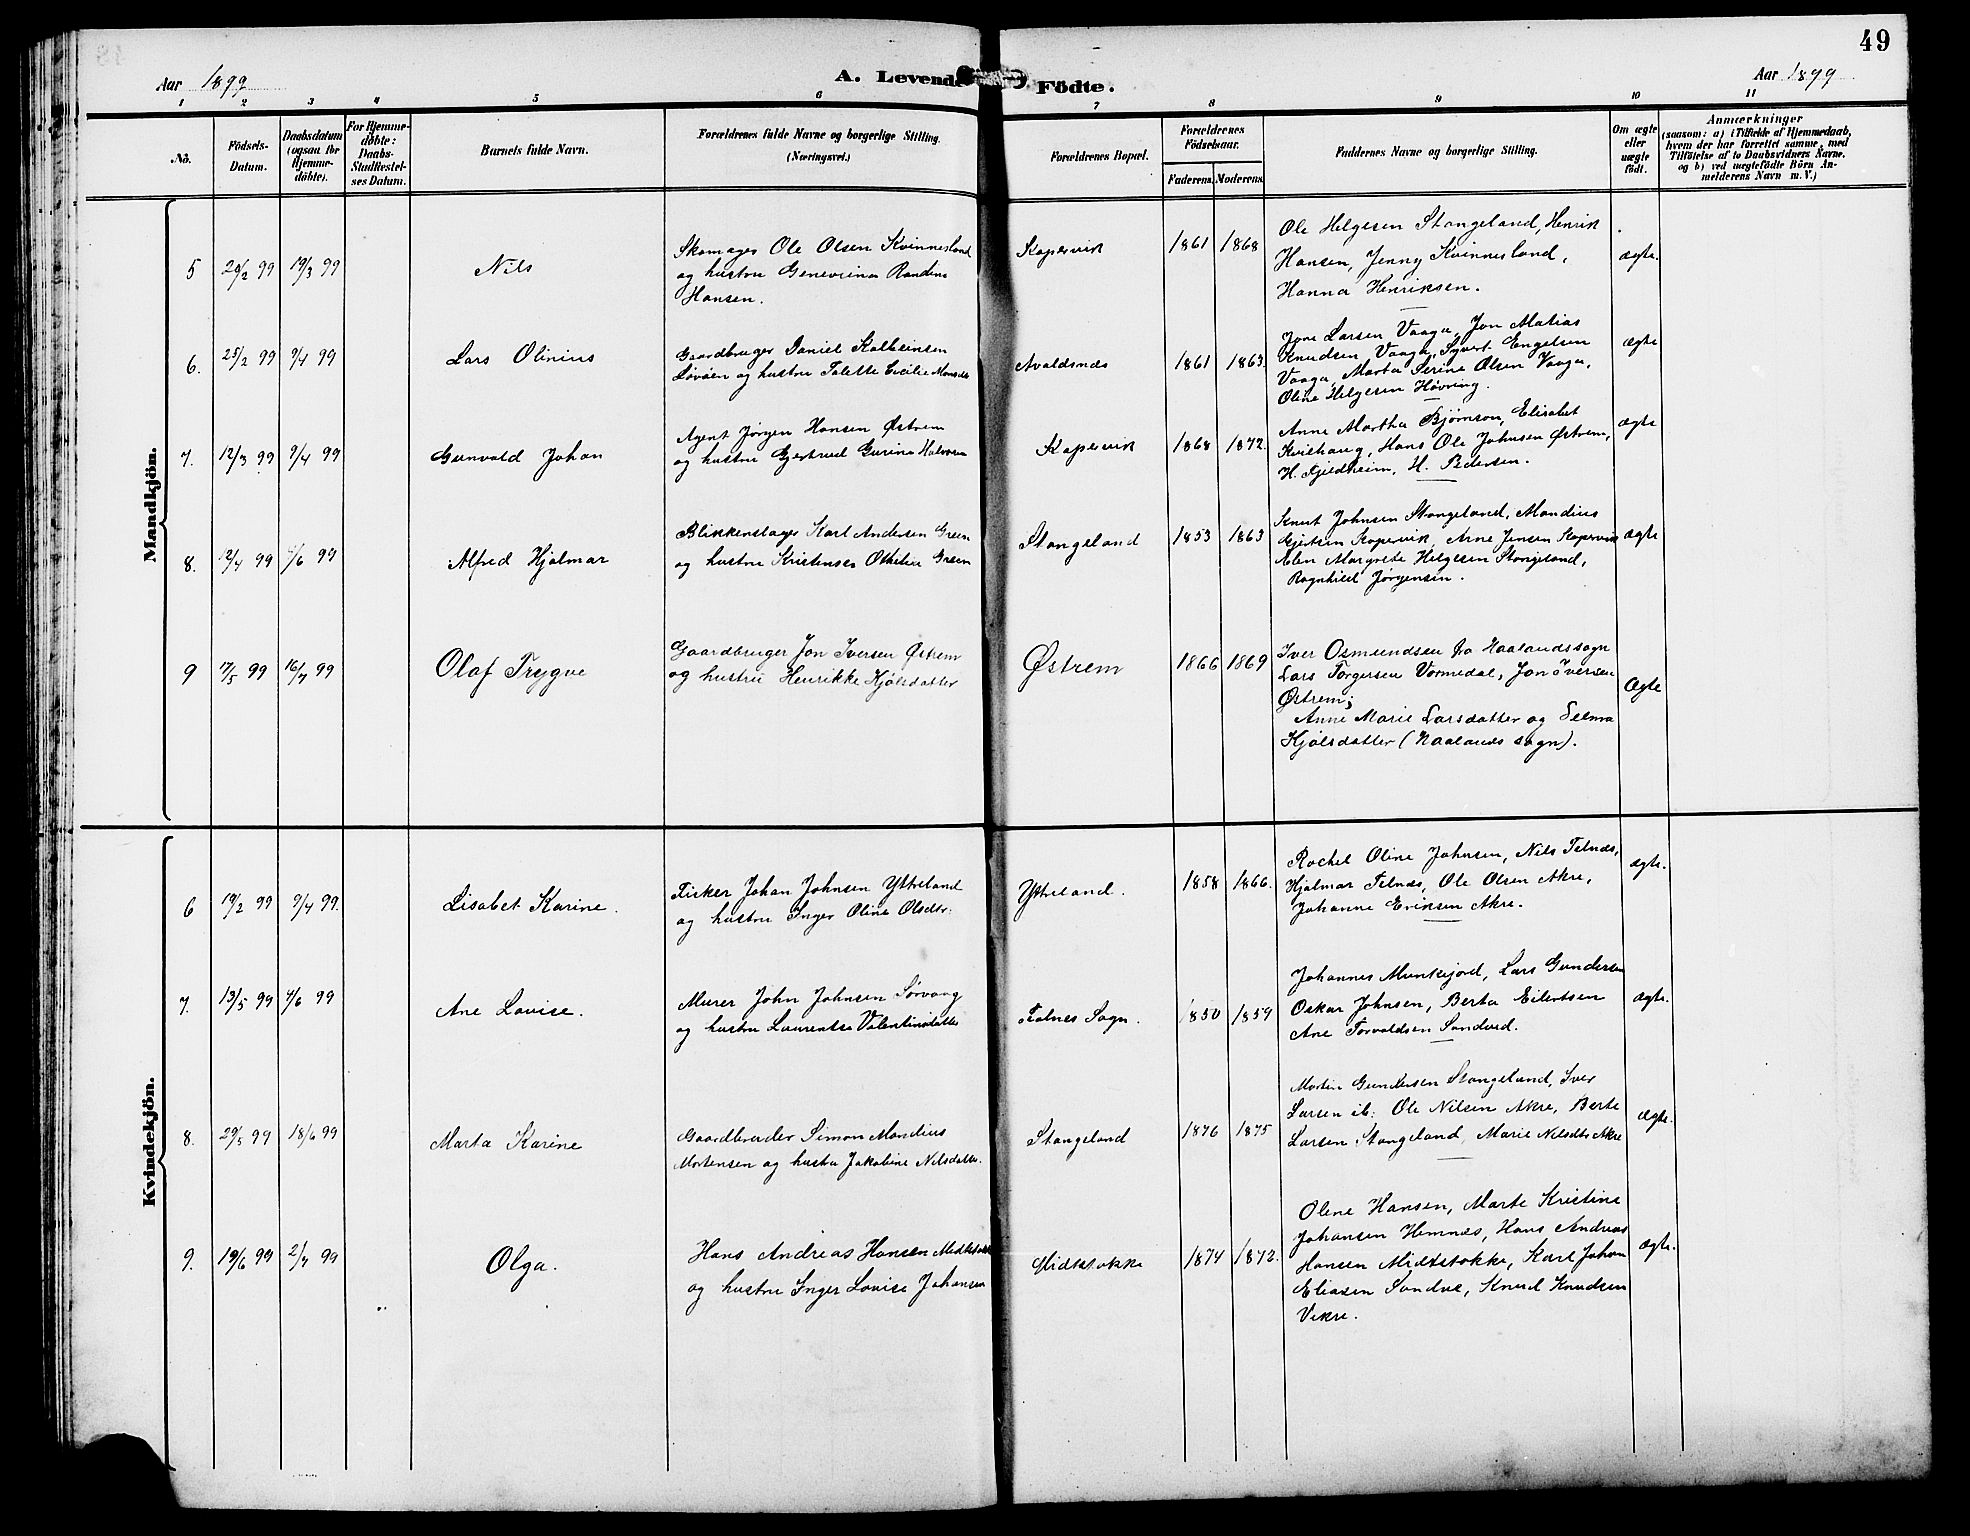 49
Aar 1899
A. Levende Födte.
Aar 1899
1 2 3 4 5 6 7 8 9 10 11
No.
Födsels-
Datum.
Daabsdatum
(ogsaa for
Hjemme-
döbte).
For Hjemme-
döbte:
Daabs-
Stadfæstel-
ses Datum.
Barnets fulde Navn.
Forældrenes fulde Navne og borgerlige Stilling.
(Næringsvei.)
Forældrenes Bopæl.
Forældrenes
Födselsaar.
Faderens. Moderens.
Faddernes Navne og borgerlige Stilling.
Om ægte
eller
uægte
født.
Anmærkninger
(saasom: a) i Tilfælde af Hjemmedaab,
hvem der har forrettet samme, med
Tilföielse af to Daabsvidners Navne,
og b) ved uægtefödte Börn An-
melderens Navn m. V.)
Mandkjön.
5 19/3 99 Nils
Skomager Ole Olsen Kvinnesland
og hustru Genevrina Randine
Hansen.
Kopervik 1861 1868
Ole Helgesen Stangeland, Henrik
Hansen, Jenny Kvinnesland,
Hanna Henriksen.
ægte.
6. 25/2 99 9/4 99 Lars Olinius
Gaardbruger Daniel Kolbeinsen
Løvöen og hustru Talette Cecilie Monsdt
Avaldsnes 1861 1863.
Jone Larsen Vaaga, Jon Matias
Knudsen Vaaga, Syvert Engelsen
Vaaga, Marta Serine Olsen Vaaga,
Oline Helgesen Høvring.
ægte
7. 12/3 99 9/4 99 Gunvald Johan
Agent Jørgen Hansen Østrem
og hustru Gjertrud Gurina Halvorsen
Kopervik 1868 1872.
Anne Martha Bjørnson, Elisabet
Kvilhaug, Hans Ole Johnsen Østrem,
H. Kjeldheim, H. Pedersen.
ægte
8. 12/4 99 4/6 99 Alfred Hjalmar
Blikkenslager Karl Andersen Green
og hustru Kristense Othelie Green
Stangeland 1853 1863
Knut Johnsen Stangeland, Mandius
Gjertsen Kopervik, Arne Jensen Kopervik
Elen Margrete Helgesen Stangeland,
Ragnhild Jørgensen.
ægte
9 17/5 99 16/7 99 Olaf Trygve
Gaardbruger Jon Iversen Østrem
og hustru Henrikke Kjølsdatter
Østrem 1866 1869
Iver Osmundsen fra Naalandssogn
Lars Torgersen Vormedal, Jon Iversen
Østrem;
Anne Marie Larsdatter og Selma
Kjølsdatter (Naalands sogn).
Ægte
Kvindekjön.
6 19/2 99 9/4 99. Lisabet Karine.
Fisker Johan Johnsen Ytreland
og hustru Inger Oline Olsdtr.
Ytreland. 1858 1866.
Rachel Oline Johnsen, Nils Felnæs,
Hjalmar Felnæs, Ole Olsen Akre,
Johanne Eriksen Akre.
ægte.
7. 13/5 99 4/6 99 Ane Lovise.
Murer John Johnsen Sørvaag
og hustru Laurentse Valentinsdatter
Falnes Sogn. 1850 1859
Johannes Munkejord, Lars Gundersen
Oskar Johnsen, Berta Eilertsen
Ane Torvaldsen Sandved.
ægte.
8. 29/5 99 18/6 99 Marta Karine
Gaardbruder Simon Mandius
Mortensen og hustru Jakobine Nilsdatter.
Stangeland 1876 1875
Martin Gundersen Stangeland, Iver
Larsen ib: Ole Nilsen Akre, Berte
Larsen Stangeland, Marie Nilsdtr Akre
ægte.
9. 19/6 99 2/7 99 Olga.
Hans Andreas Hansen Midtstokke
og hustru Inger Lovise Johansen
Midtstokke 1874 1872.
Olene Hansen, Marte Kristine
Johansen Hemnes, Hans Andreas
Hansen Midtstokke, Karl Johan
Eliasen Sandve, Knud Knudsen
Vikre.
ægte.